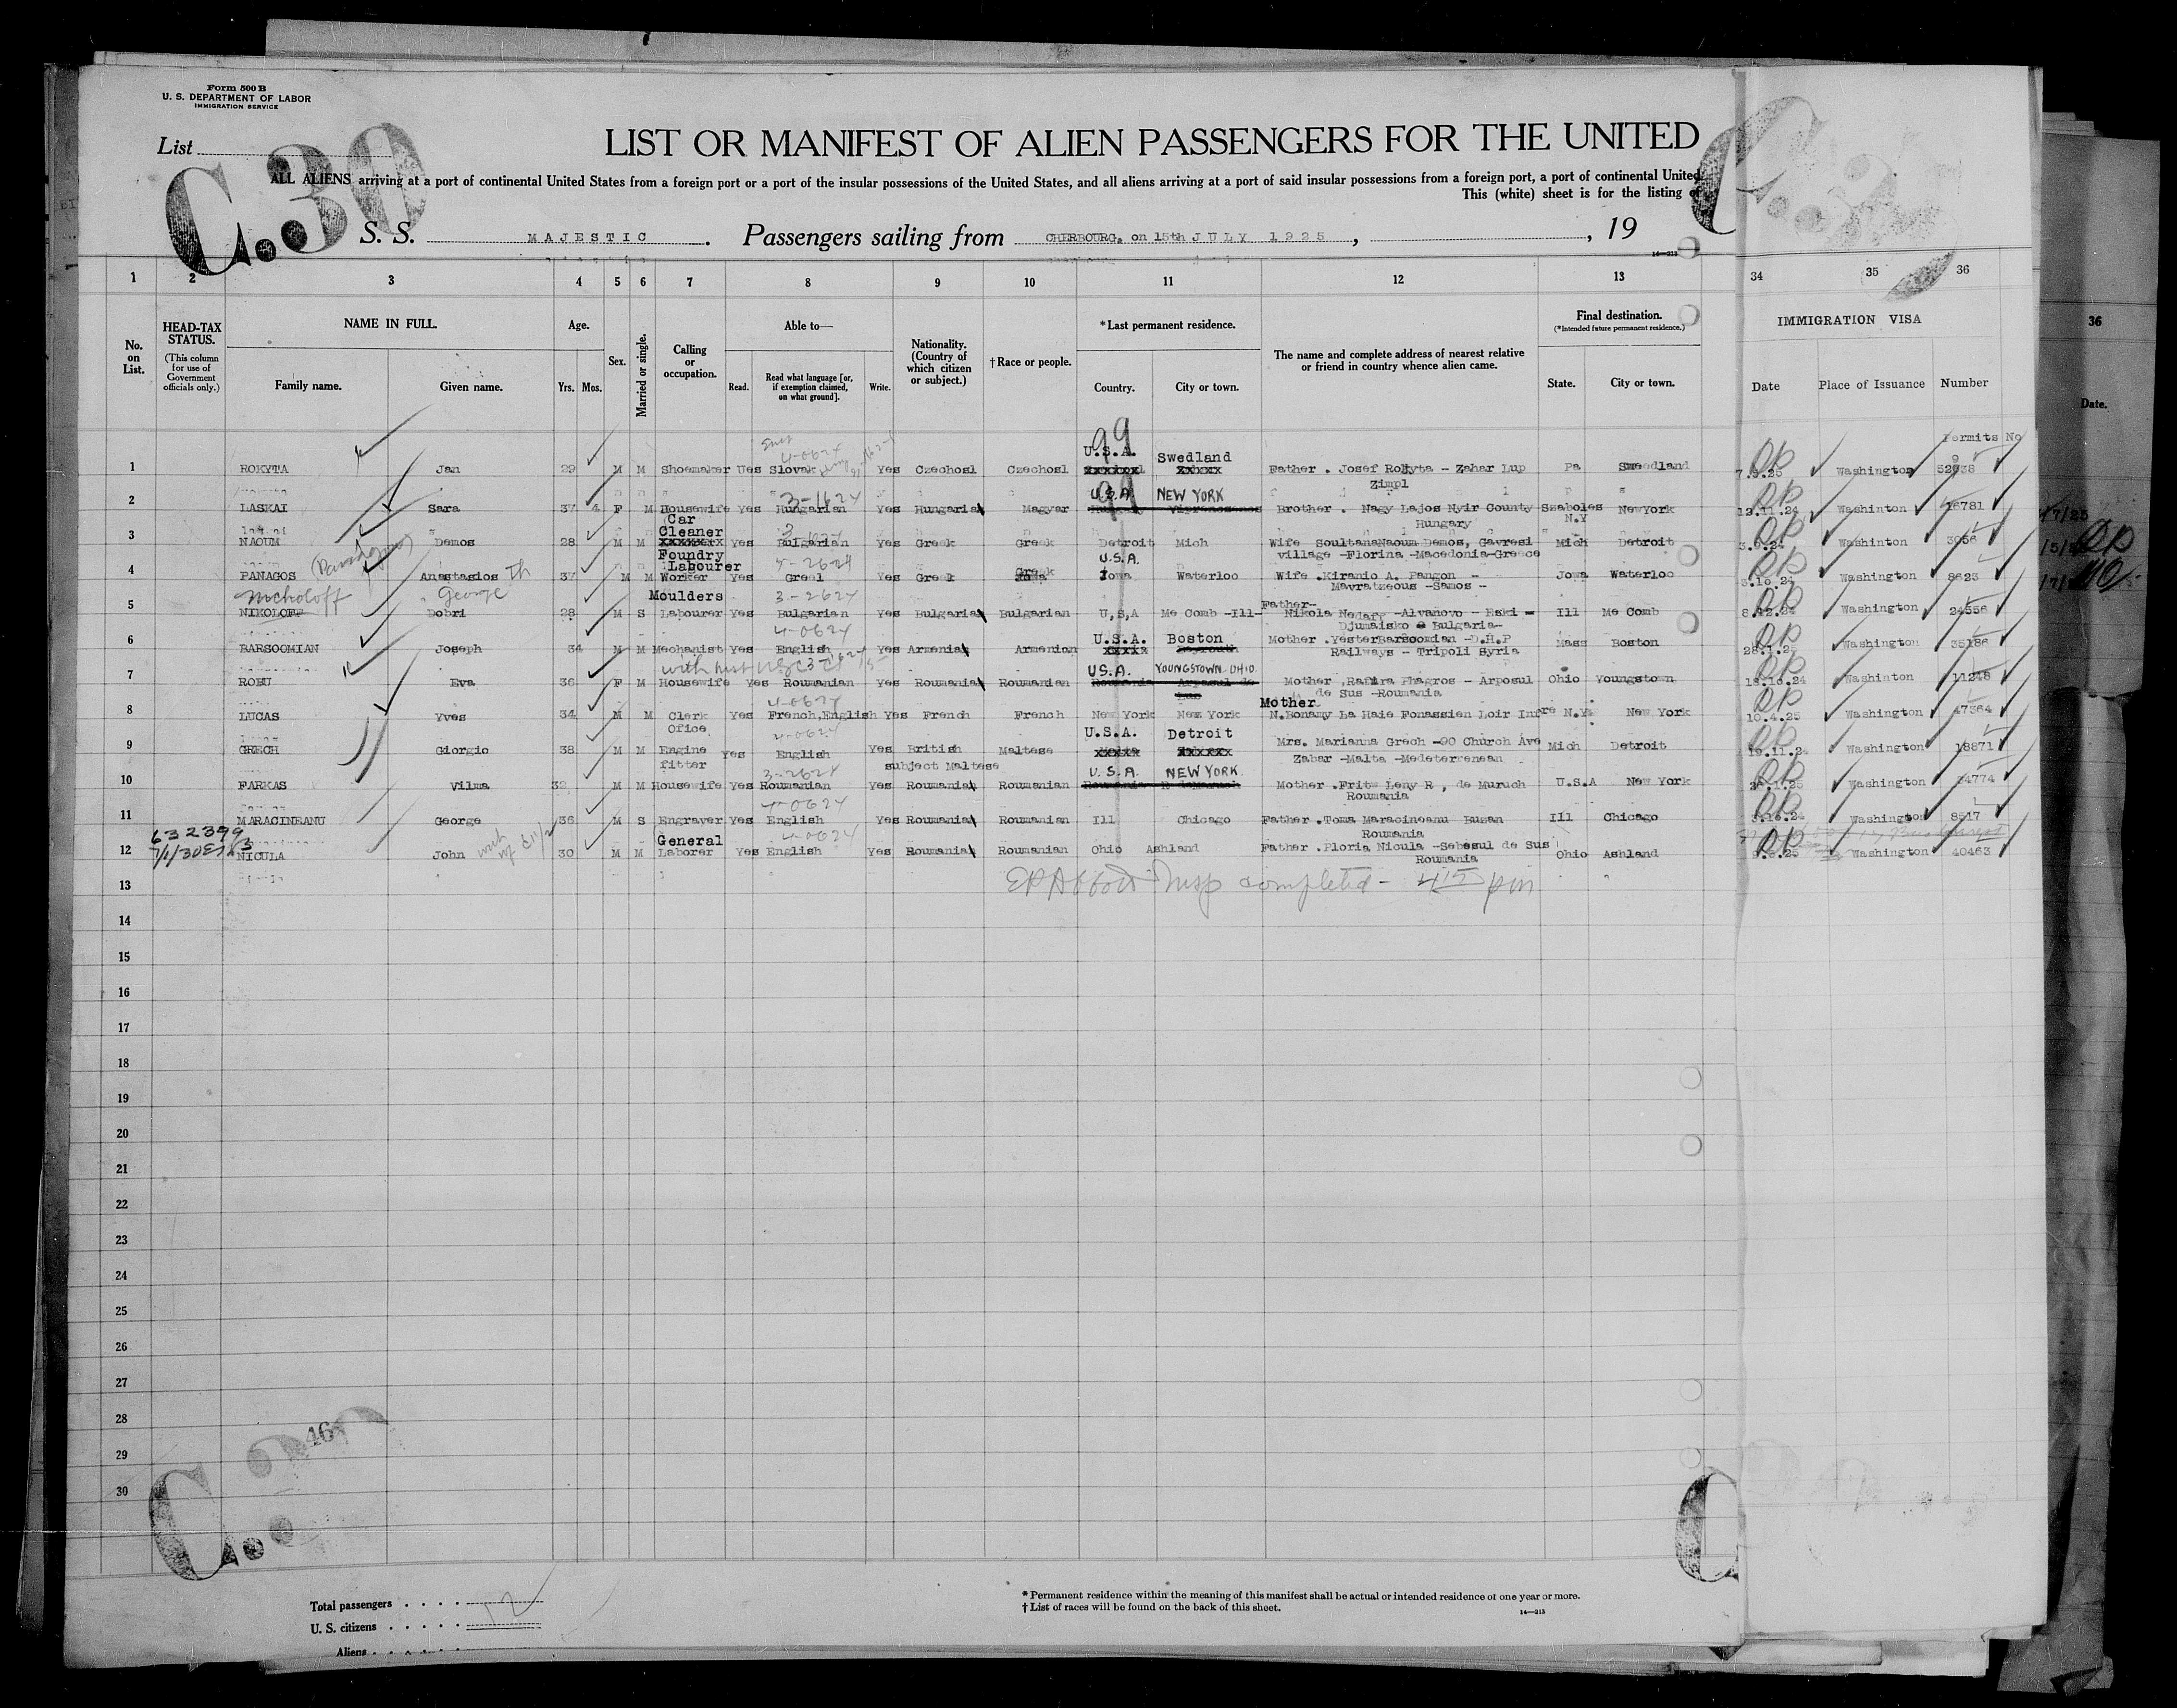 Form 500 B
U. S. DEPARTMENT OF LABOR
IMMIGRATION SERVICE
List
C. 30
LIST OR MANIFEST OF ALIEN PASSENGERS FOR THE UNITED
ALL ALIENS arriving at a port of continental United States from a foreign port or a port of the insular possessions of the United States, and all aliens arriving at a port of said insular possessions from a foreign port, a port of continental United
This (white) sheet is for the listing of
S. S. MAJESTIC. Passengers sailing from CHERBOURG, on 15th JULY 1925, , 19
14—213
1 2 3 4 5 6 7 8 9 10 11 12 13 34 35 36
No. on List.
HEAD-TAX STATUS.
(This column for use of Government officials only.)
NAME IN FULL.
Family name. Given name.
Age.
Yrs. Mos.
Sex.
Married or single.
Calling or occupation.
Able to—
Read. Read what language [or, if exemption claimed, on what ground]. Write.
Nationality. (Country of which citizen or subject.)
† Race or people.
*Last permanent residence.
Country. City or town.
The name and complete address of nearest relative or friend in country whence alien came.
Final destination.
(*Intended future permanent residence.)
State. City or town.
IMMIGRATION VISA
Date Place of Issuance Number
36
Date.
Permits No
99
4-0624
U.S.A. Swedland
1 ROKYTA Jan 29 M M Shoemaker Ues Slovak Yes Czechosl Czechosl Father . Josef Rokyta - Zahar Lup Pa Swedland 7.3.25 Washington
Zimpl
99
3-1624
U.S.A. NEW YORK
2 LASKAI Sara 37 4 F M Housewife Yes Hungarian Yes Hungarian Magyar Brother . Nagy Lajos Nyir County Szaboles N.Y NewYork 12.11.24 Washinton 16781
Hungary
Car Cleaner
3 NAOUM Demos 28 M M Yes Bulgarian Yes Greek Greek Detroit Mich Wife SoultanaNaoum Demos, Gavresi Mich Detroit 3.9.24 Washinton 3056
village -Florina -Macedonia-Greece
Foundry Labourer
4-2624
U.S.A.
4 PANAGOS Anastasios Th 37 M M Worker Yes Greel Yes Greek Greek Iowa Waterloo Wife .Kiranio A. Pangon - Jowa Waterloo 3.10.24 Washington 8623
Mavratzeous -Samos -
Nicholoff George
Moulders
3-2624
5 NIKOLOFF Dobri 28 M S Labourer Yes Bulgarian Yes Bulgarian Bulgarian U,S,A Mc Comb -Ill- Father- Nikola Nedary -Alvanovo - Eski - Ill Mc Comb 8.12.24 Washington 24556
Djumaisko Bulgaria-
4-0624
U.S.A. Boston
6 BARSOOMIAN Joseph 34 M M Mechanist Yes English Yes Armenian Armenian Mother .YesterBarsoomian -D.H.P Mass Boston 28.1.25 Washington 35186
Railways - Tripoli Syria
U.S.A. YOUNGSTOWN OHIO
7 ROBU Eva 36 F M Housewife Yes Roumanian Yes Roumanian Roumanian Mother .Rafira Phagros - Arposul Ohio Youngstown 18.10.24 Washinton 11248
de Sus -Roumania
4-0624
Mother
8 LUCAS Yves 34 M M Clerk Yes French,English Yes French French New York New York N.Bonamy La Haie Fonassien Loir Infre N.Y. New York 10.4.25 Washington 47364
Ofice
4-0624
U.S.A. Detroit
9 GRECH Giorgio 38 M M Engine Yes English Yes British Maltese Mrs. Marianna Grech -90 Church Ave Mich Detroit 19.11.24 Washington 18871
fitter subject Maltese Zabar -Malta -Medeterrenean
3-2624
U.S.A. NEW YORK
10 FARKAS Vilma 32 M M Housewife Yes Roumanian Yes Roumanian Roumanian Mother .Fritw Leny R , de Muruch U.S.A New York Washington 34774
Roumania
4-0624
11 MARACINEANU George 36 M S Engraver Yes English Yes Roumanian Roumanian Ill Chicago Father .Toma Maracineanu Buzan Ill Chicago 3.10.24 Washington 8517
Roumania
632399
General
4-0624
12 NICULA John 30 M M Laborer Yes English Yes Roumanian Roumanian Ohio Ashland Father .Floria Nicula -Sebesul de Sus Ohio Ashland 9.6.25 Washington 40463
Roumania
13 Insp completed - 4 15 pm
14
15
16
17
18
19
20
21
22
23
24
25
26
27
28
29
30
46
C.
Total passengers . . . . 12
U. S. citizens . . . . .
Aliens . . . . . .
* Permanent residence within the meaning of this manifest shall be actual or intended residence of one year or more.
† List of races will be found on the back of this sheet.
14—213